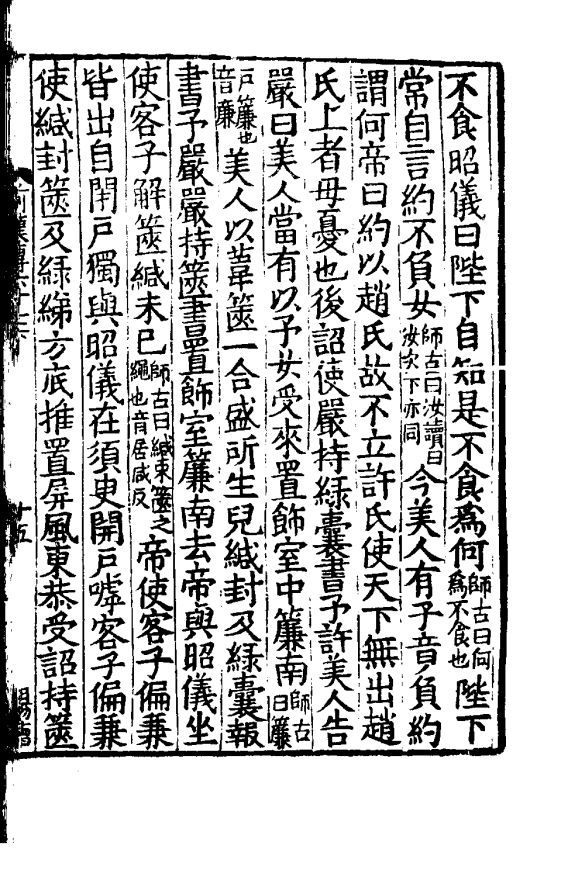 不食昭儀曰陛下自知是不食爲何師古曰何爲不食也陛下
常自言約不負女師古曰汝讀曰汝次下亦同今美人有子音負約
謂何帝曰約以趙氏故不立許氏使天下無出趙
氏上者毋憂也後詔使嚴持綠囊書予許美人告
嚴曰美人當有以予女受來置飾室中簾南師古曰簾
戶簾也音廉美人以葦篋一合盛所生兒緘封及綠囊報
書予嚴嚴持篋書置飾室簾南去帝與昭儀坐
使客子解篋緘未已師古曰緘束篋之繩也音居咸反帝使客子偏兼
皆出自閉戶獨與昭儀在須臾開戶嘑客子偏兼
使緘封篋及綠綈方底推置屏風東恭受詔持篋
十五